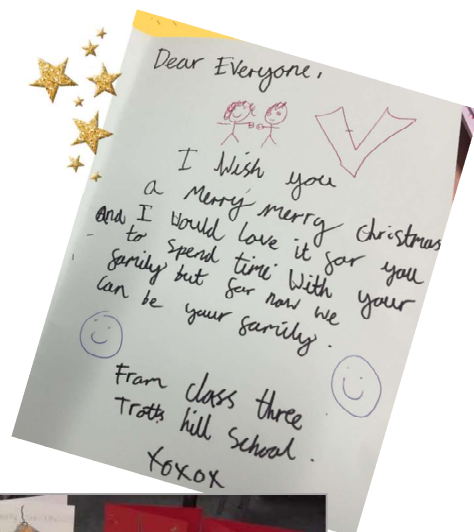 Dear Everyone,
I Wish you
a Merry merry christmas
And I Would love it for you
to spend time With your
family but for now we
can be your family.
From class three
Trotts hill School.
xoxox